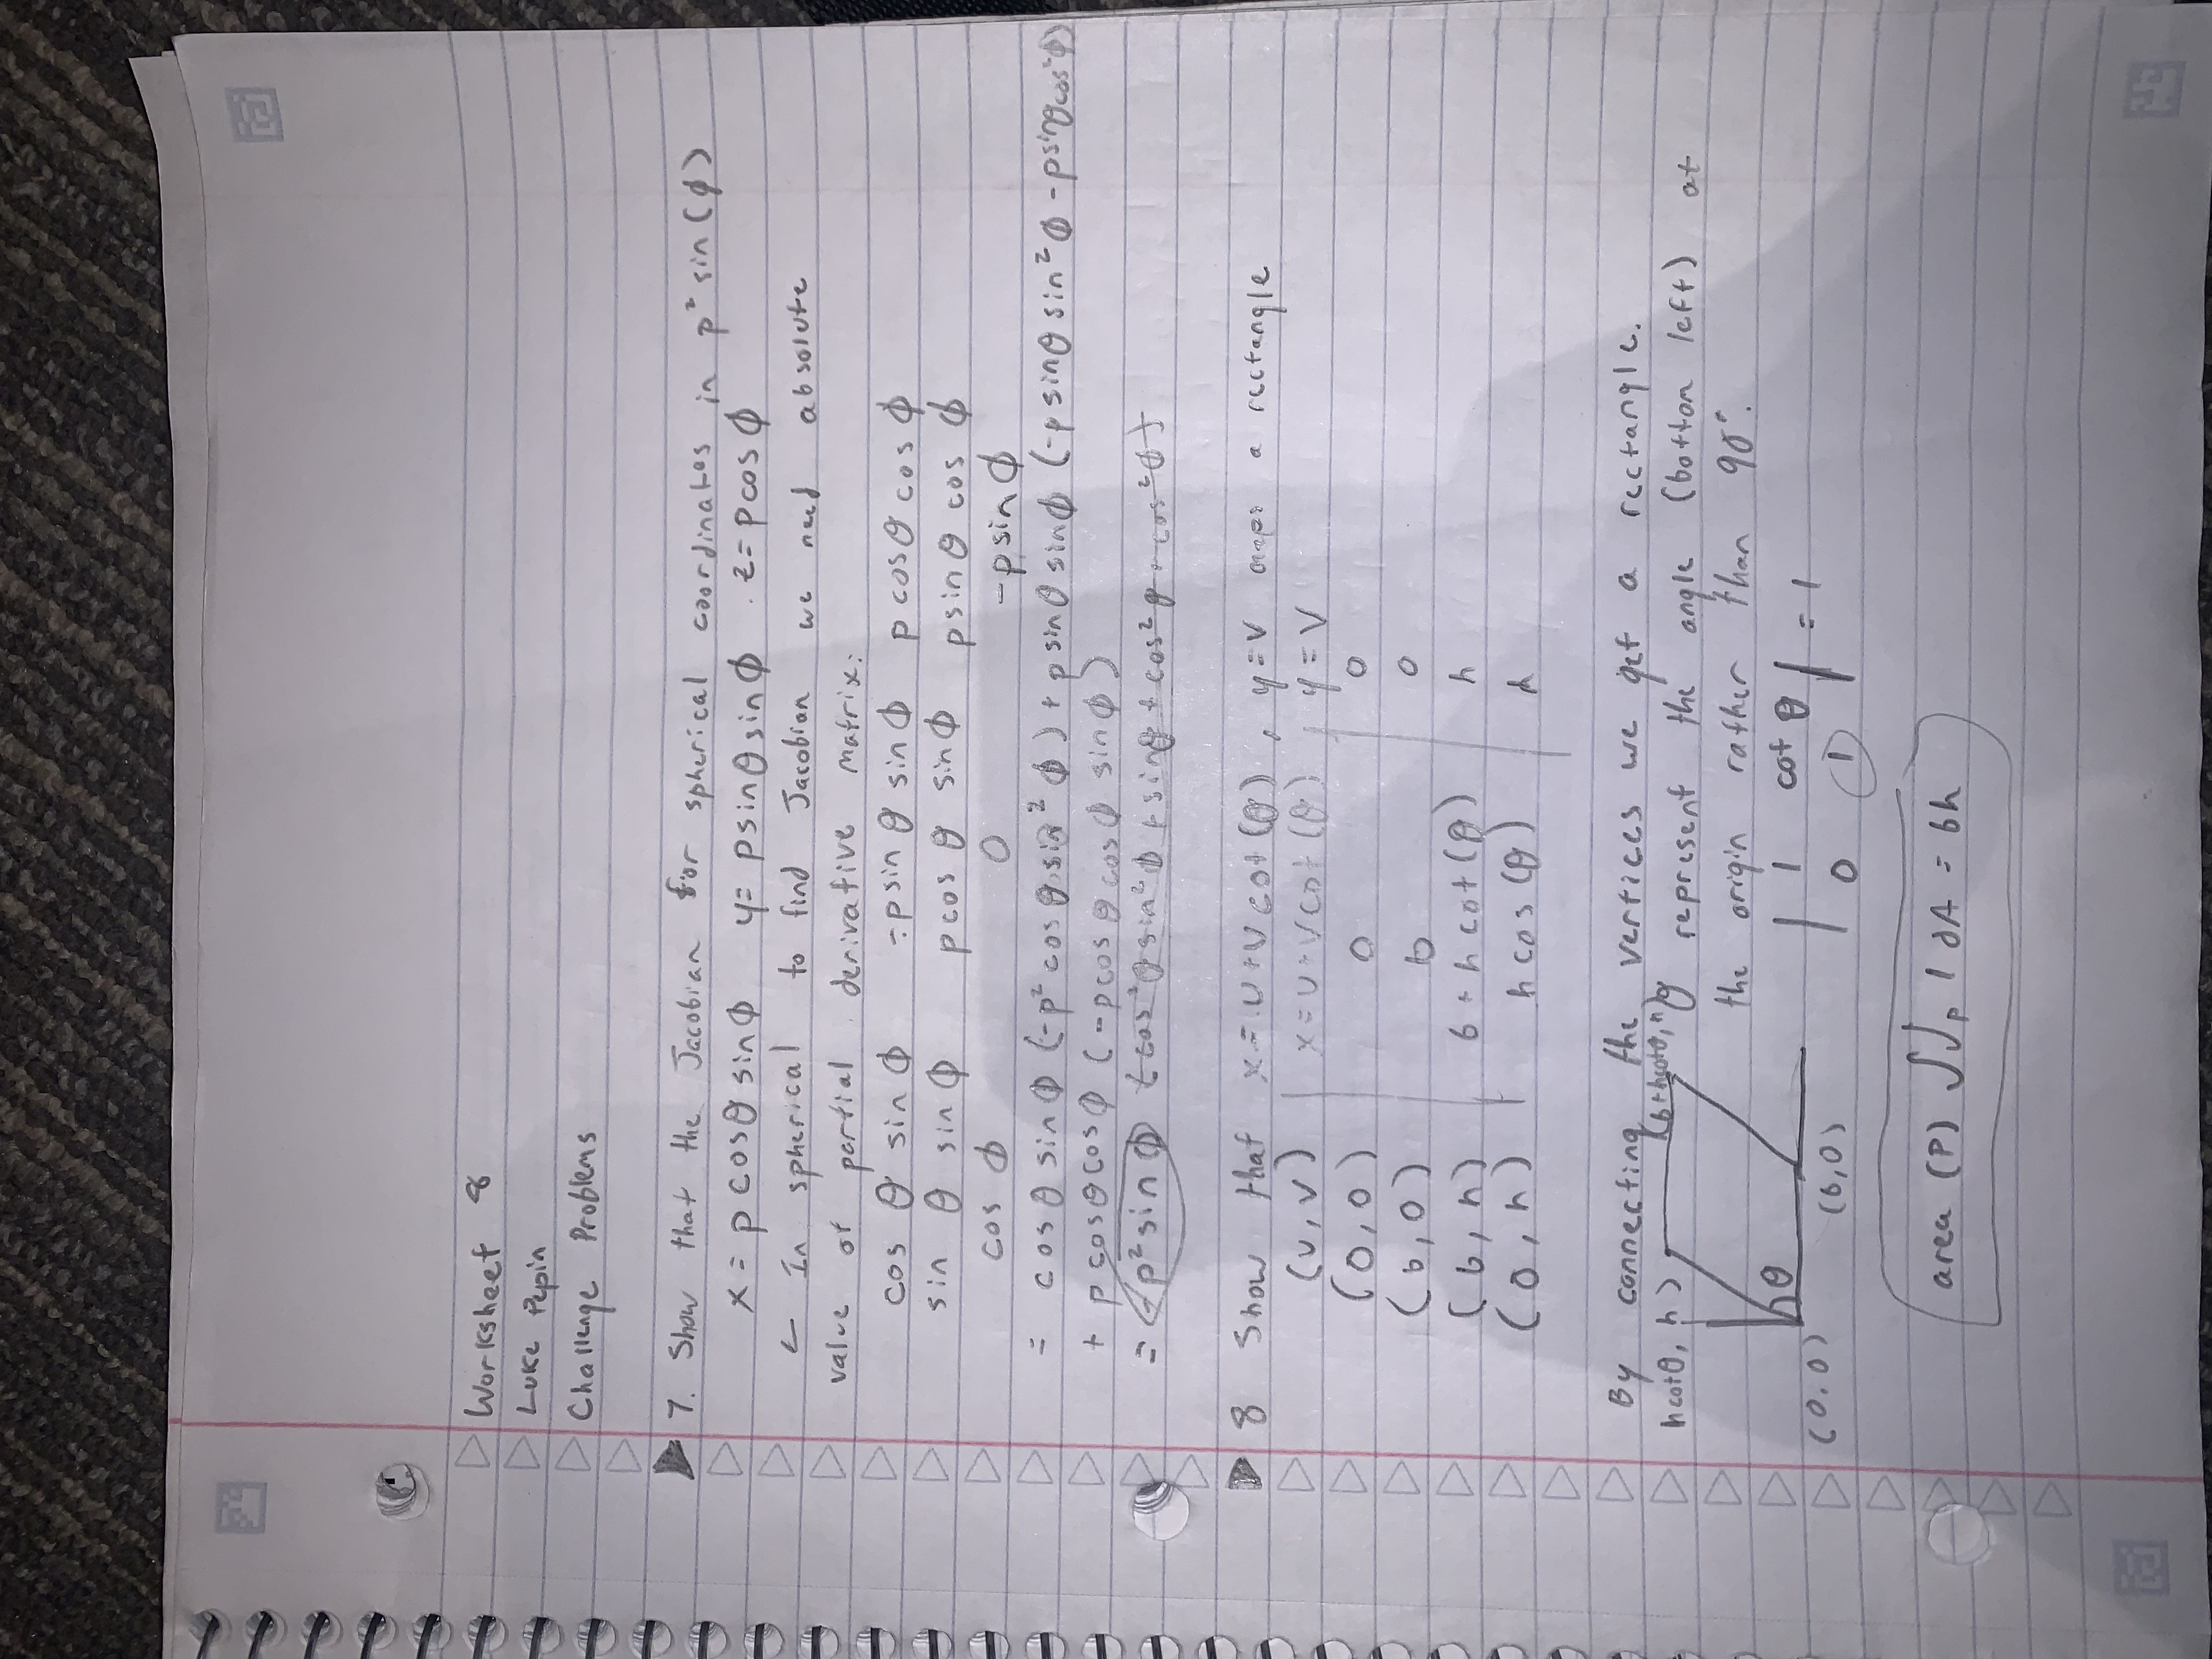 Worksheet 8
Luke Pepin
Challenge Problems
7. Show that the Jacobian for spherical coordinates in p² sin(ϕ)
x = p cosθ sinϕ y = psinθ sinϕ . z = pcos ϕ
← In spherical to find Jacobian we need absolute
value of partial derivative matrix:
cos θ sin ϕ -psin θ sin ϕ p cosθ cos ϕ
sin θ sin ϕ pcos θ sinϕ psinθ cos ϕ
cos ϕ 0 -psinϕ
= cosθ sinϕ (-p² cosθ sin² ϕ) + psinθ sinϕ (-psinθ sin² ϕ - psinθcos²ϕ)
+ pcosθcosϕ (-pcosθcosϕ sinϕ)
= -p² sin ϕ (cos²θsin²ϕ + sinθ + cos²θ + cos²ϕ)
8 Show that x = u+v cot(θ), y=v maps a rectangle
(u,v) x=u+vcot(θ) y=v
(0,0) 0 0
(b,0) b 0
(b,h) b+hcot(θ) h
(0,h) hcos(θ) h
By connecting the vertices we get a rectangle.
hcotθ, h) (b+hcotθ,h) θ represent the angle (bottom left) at
the origin rather than 90°.
θ
(0,0) (b,0)
| 1 cot θ | = 1
0 1
area (P) ∫∫ₚ 1 dA = bh